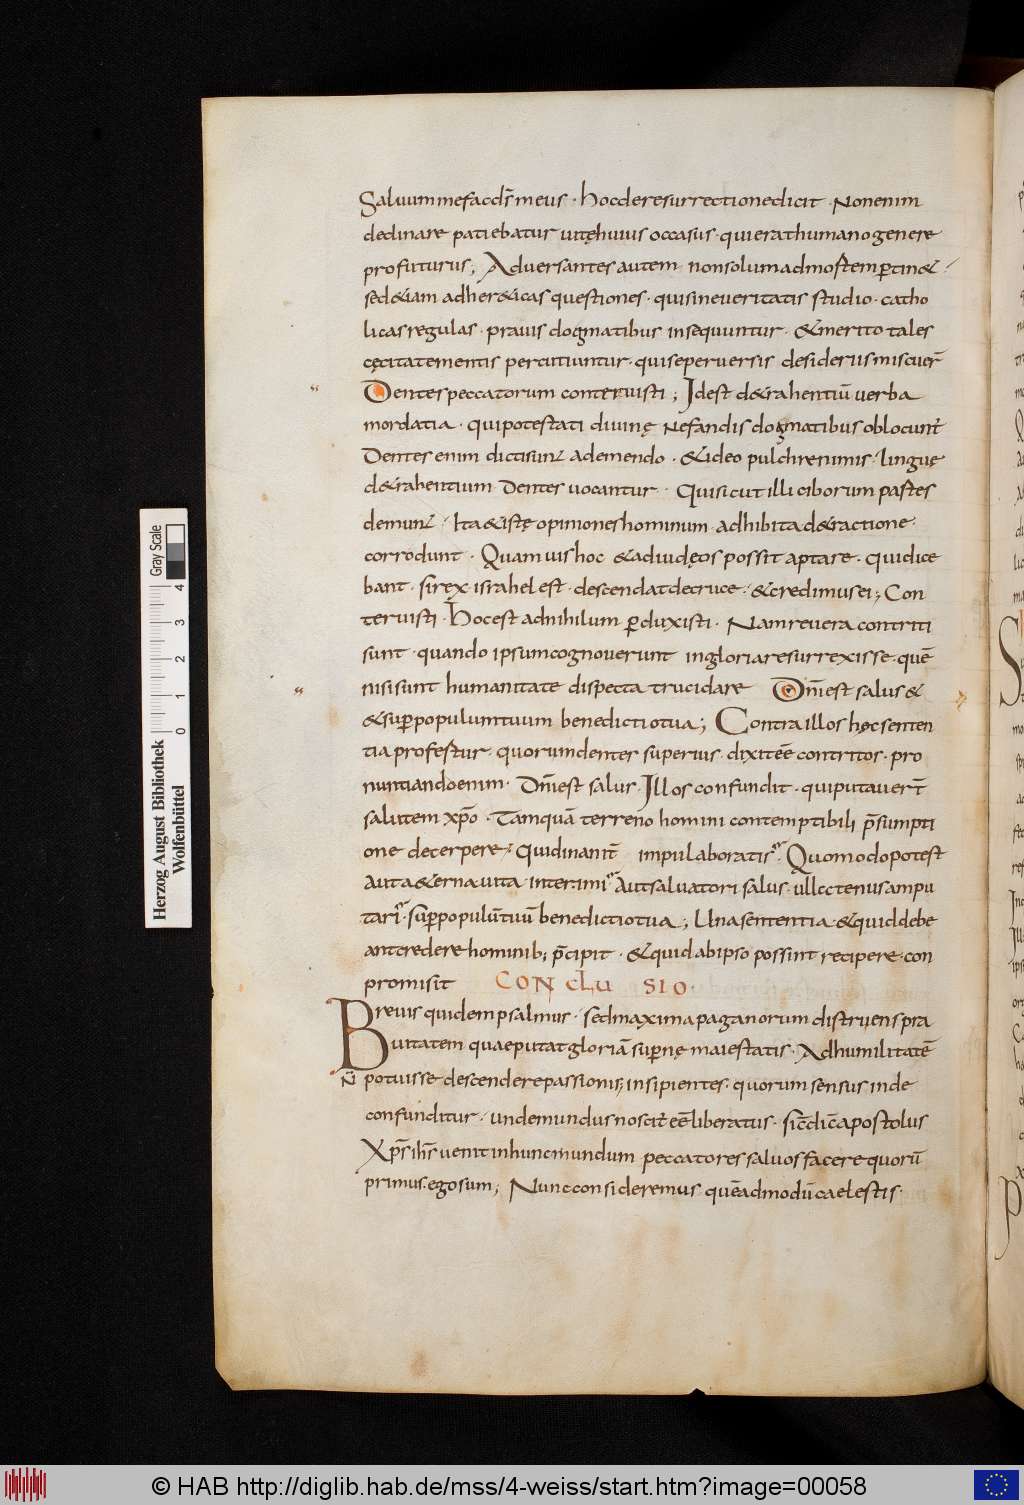 Saluum me fac d̄s meus · hoc de resurrectione dicit · Non enim
declinare patiebatur uitę huius occasus · qui erat humano genere
profuturus; Aduersantes autem non solum ad mostem ꝑtin&
sed &iam ad her&icas questiones · qui sine ueritatis studio · catho
licas regulas · prauis dogmatibus insequuntur · & merito tales
cęcitate mentis percutiuntur · qui se peruersis desideriis miscuer̄
Dentes peccatorum conteruisti; Id est d&rahentiū uerba
mordatia · qui potestati diuinę nefandis dogmatibus oblocunt̄
Dentes enim dicti sunt a demendo · & ideo pulchre nimis linguę
d&rahentium dentes uocantur · Qui sicut illi ciborum pastes
demunt ita & istę opiniones hominum adhibita d&ractione
corrodunt · Quamuis hoc & ad iudęos possit aptare · qui dice
bant · si rex israhel est · descendat de cruce · & credimus ei; Con
teruisti · Hoc est ad nihilum ꝑduxisti · Nam reuera contriti
sunt · quando ipsum cognouerunt in gloria resurrexisse · quē
nisi sunt humanitate dispecta trucidare Dn̄i est salus &
& suꝑ populum tuum benedictio tua; Contra illos hęc senten
tia profestur · quorum denter superius · dixit eē contritos · pro
nuntiando enim · Dn̄i est salus · Illos confundit · qui putauer̄
salutem xp̄o · Tamquā terreno homini contemptibili p̄sumpti
one decerpere · Quid inanit̄ impii laboratis · Quomodo potest
aut a&erna uita interimi aut saluatori salus · ullo tenus ampu
tari · suꝑ populūtuū benedictio tua; Una sententia · & quid debe
ant credere hominib; p̄cipit · & quid ab ipso possint recipere · con
promisit CONCLUSIO ·
Breuis quidem psalmus · sed maxima paganorum distruens pra
uitatem quae putat gloriā suꝑnę maiestatis · Ad humilitatē
N̄ potuisse descendere passionis; insipientes · quorum sensus inde
confunditur · unde mundus noscit̄ eē liberatus · sic̄ dic̄ apostolus
Xp̄s ih̄s uenit in hunc mundum peccatores saluos facere quorū
primus ego sum; Nunc consideremus quēadmodū caelestis ·
Herzog August Bibliothek
Wolfenbüttel
0 1 2 3 4
Gray Scale
© HAB http://diglib.hab.de/mss/4-weiss/start.htm?image=00058